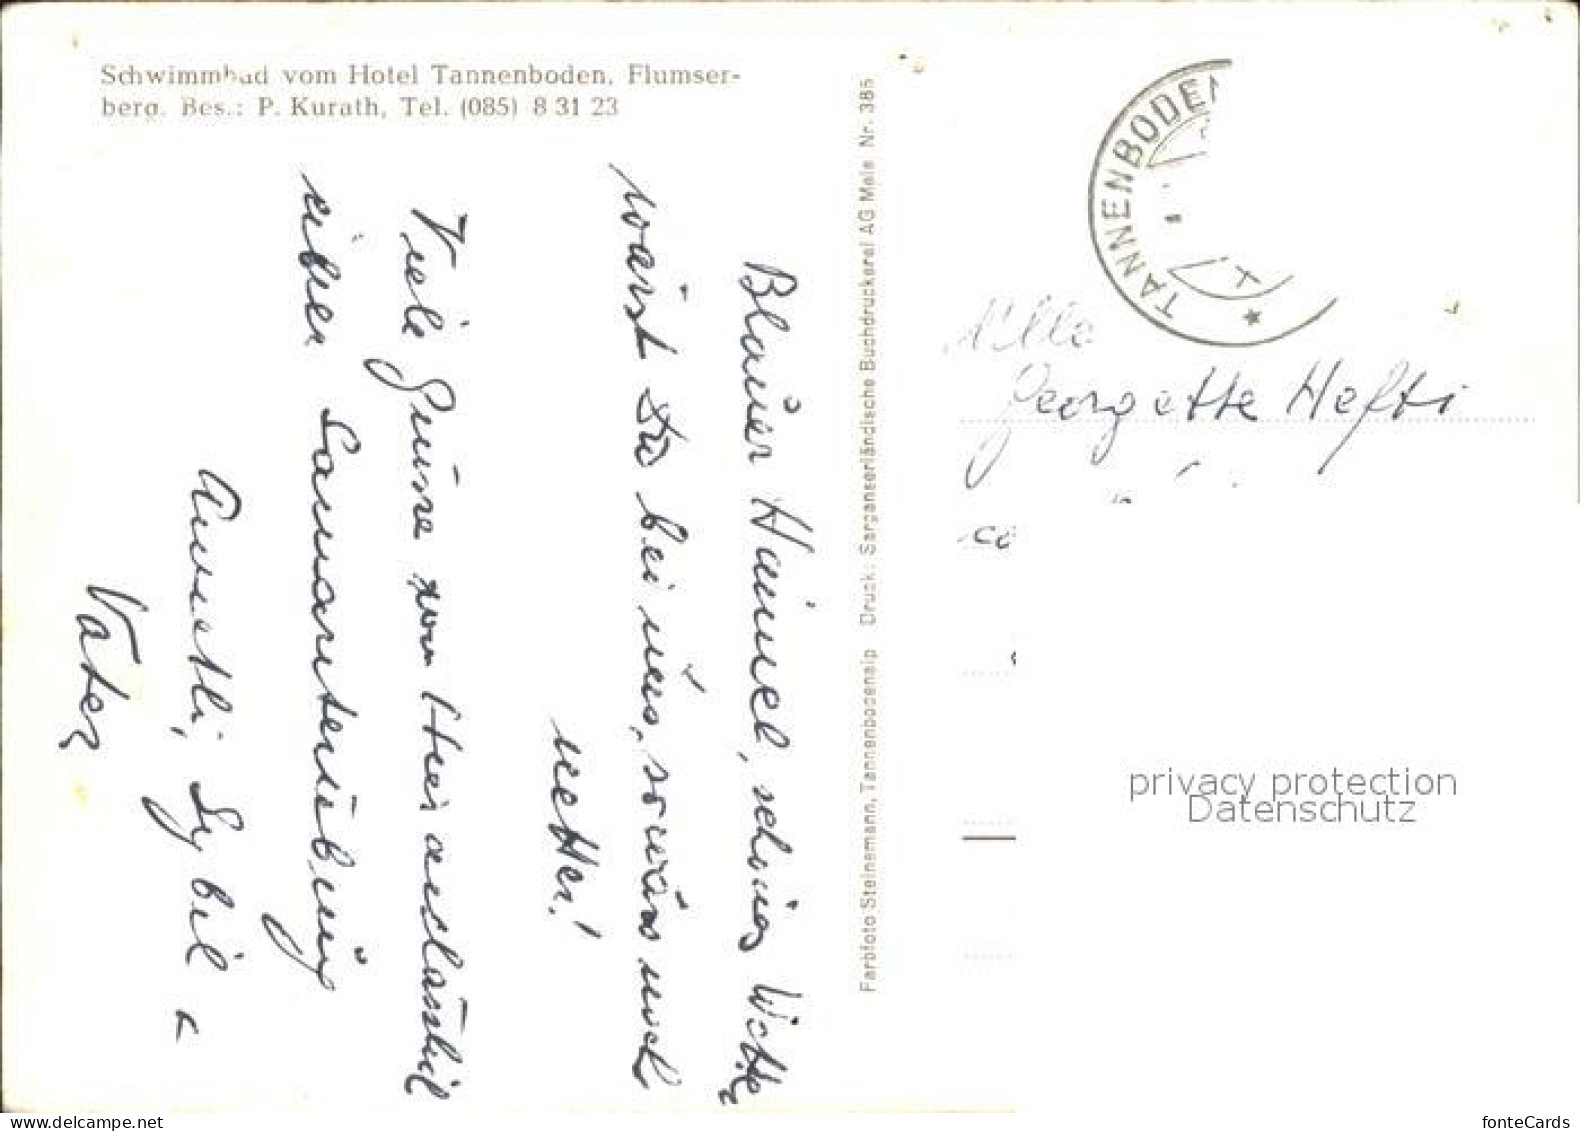 Schwimmbad vom Hotel Tannenboden, Flumser-
berg. Bes.: P. Kurath, Tel. (085) 8 31 23
Blauer Himmel, schönes Wetter
wärst Du bei uns, so wärs noch
netter!
Viele Grüsse von
einer
Vater
Farbfoto Steinemann, Tannenbodenalp Druck: Sarganserländische Buchdruckerei AG Mels Nr. 385
TANNENBODEN
Mlle
Georgette Hefti
privacy protection
Datenschutz
fonteCards